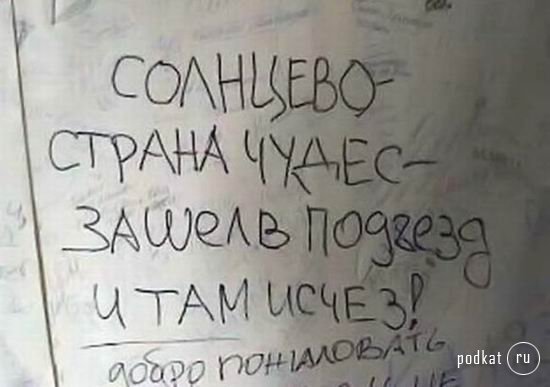 СОЛНЦЕВО-
СТРАНА ЧУДЕС-
ЗАШЕЛ В ПОДЪЕЗД
И ТАМ ИСЧЕЗ!
добро ПОЖАЛОВАТЬ
podkat ru